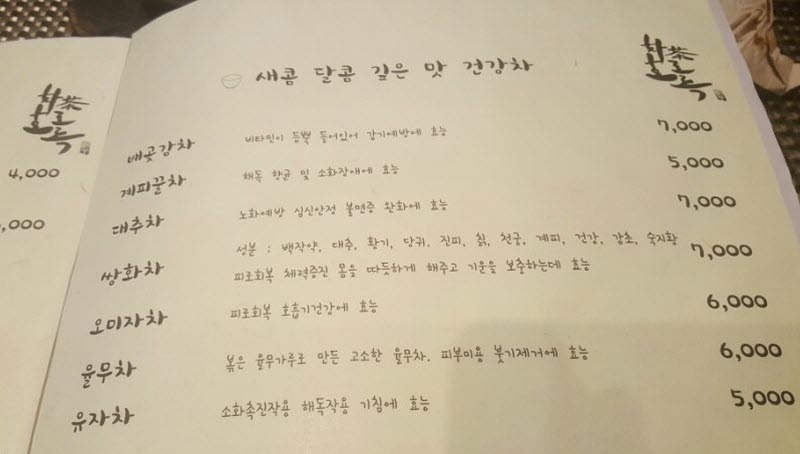 4,000
,000
새콤 달콤 깊은 맛 건강차
茶
호로록
배곳감차 비타민이 듬뿍 들어있어 감기예방에 효능 7,000
계피꿀차 해독 향균 및 소화장애에 효능 5,000
대추차 노화예방 심신안정 불면증 완화에 효능 7,000
쌍화차 성분 : 백작약, 대추, 황기, 당귀, 진피, 칡, 천궁, 계피, 건강, 감초, 숙지황 7,000
피로회복 체력증진 몸을 따듯하게 해주고 기운을 보충하는데 효능
오미자차 피로회복 호흡기건강에 효능 6,000
율무차 볶은 율무가루로 만든 고소한 율무차. 피부미용 붓기제거에 효능 6,000
유자차 소화촉진작용 해독작용 기침에 효능 5,000